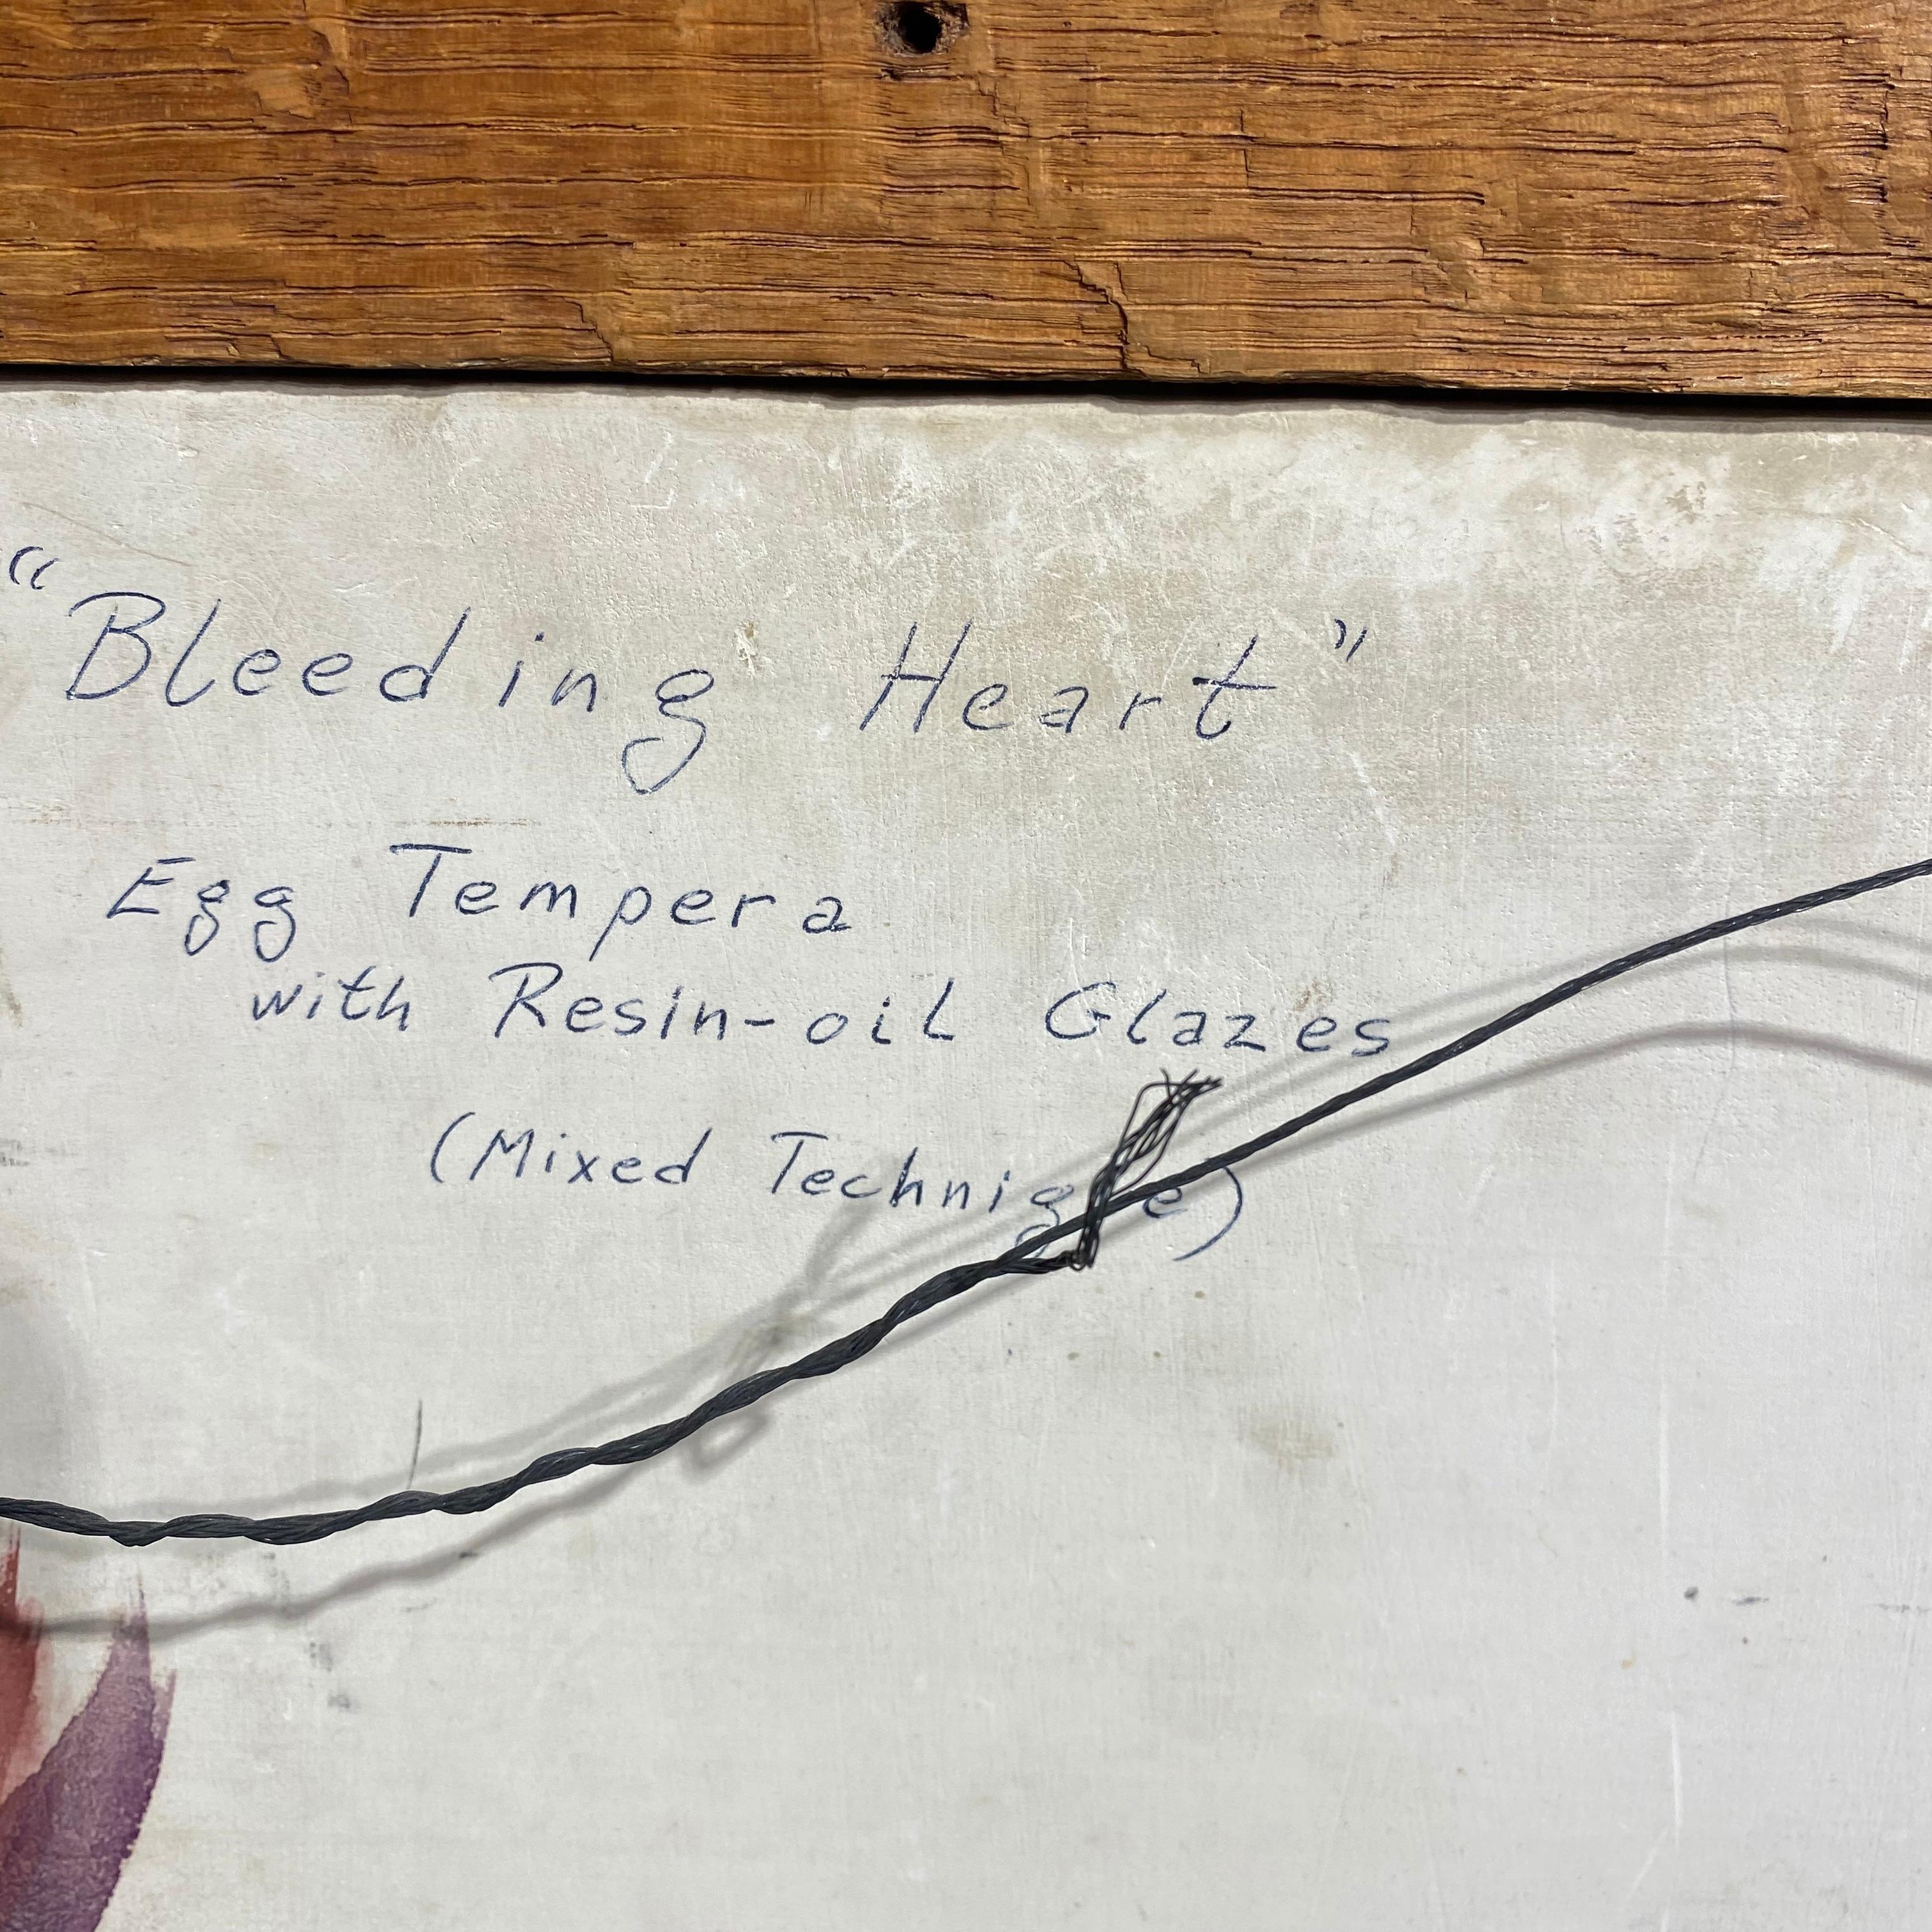 "Bleeding Heart"
Egg Tempera
with Resin-oil Glazes
(Mixed Technique)